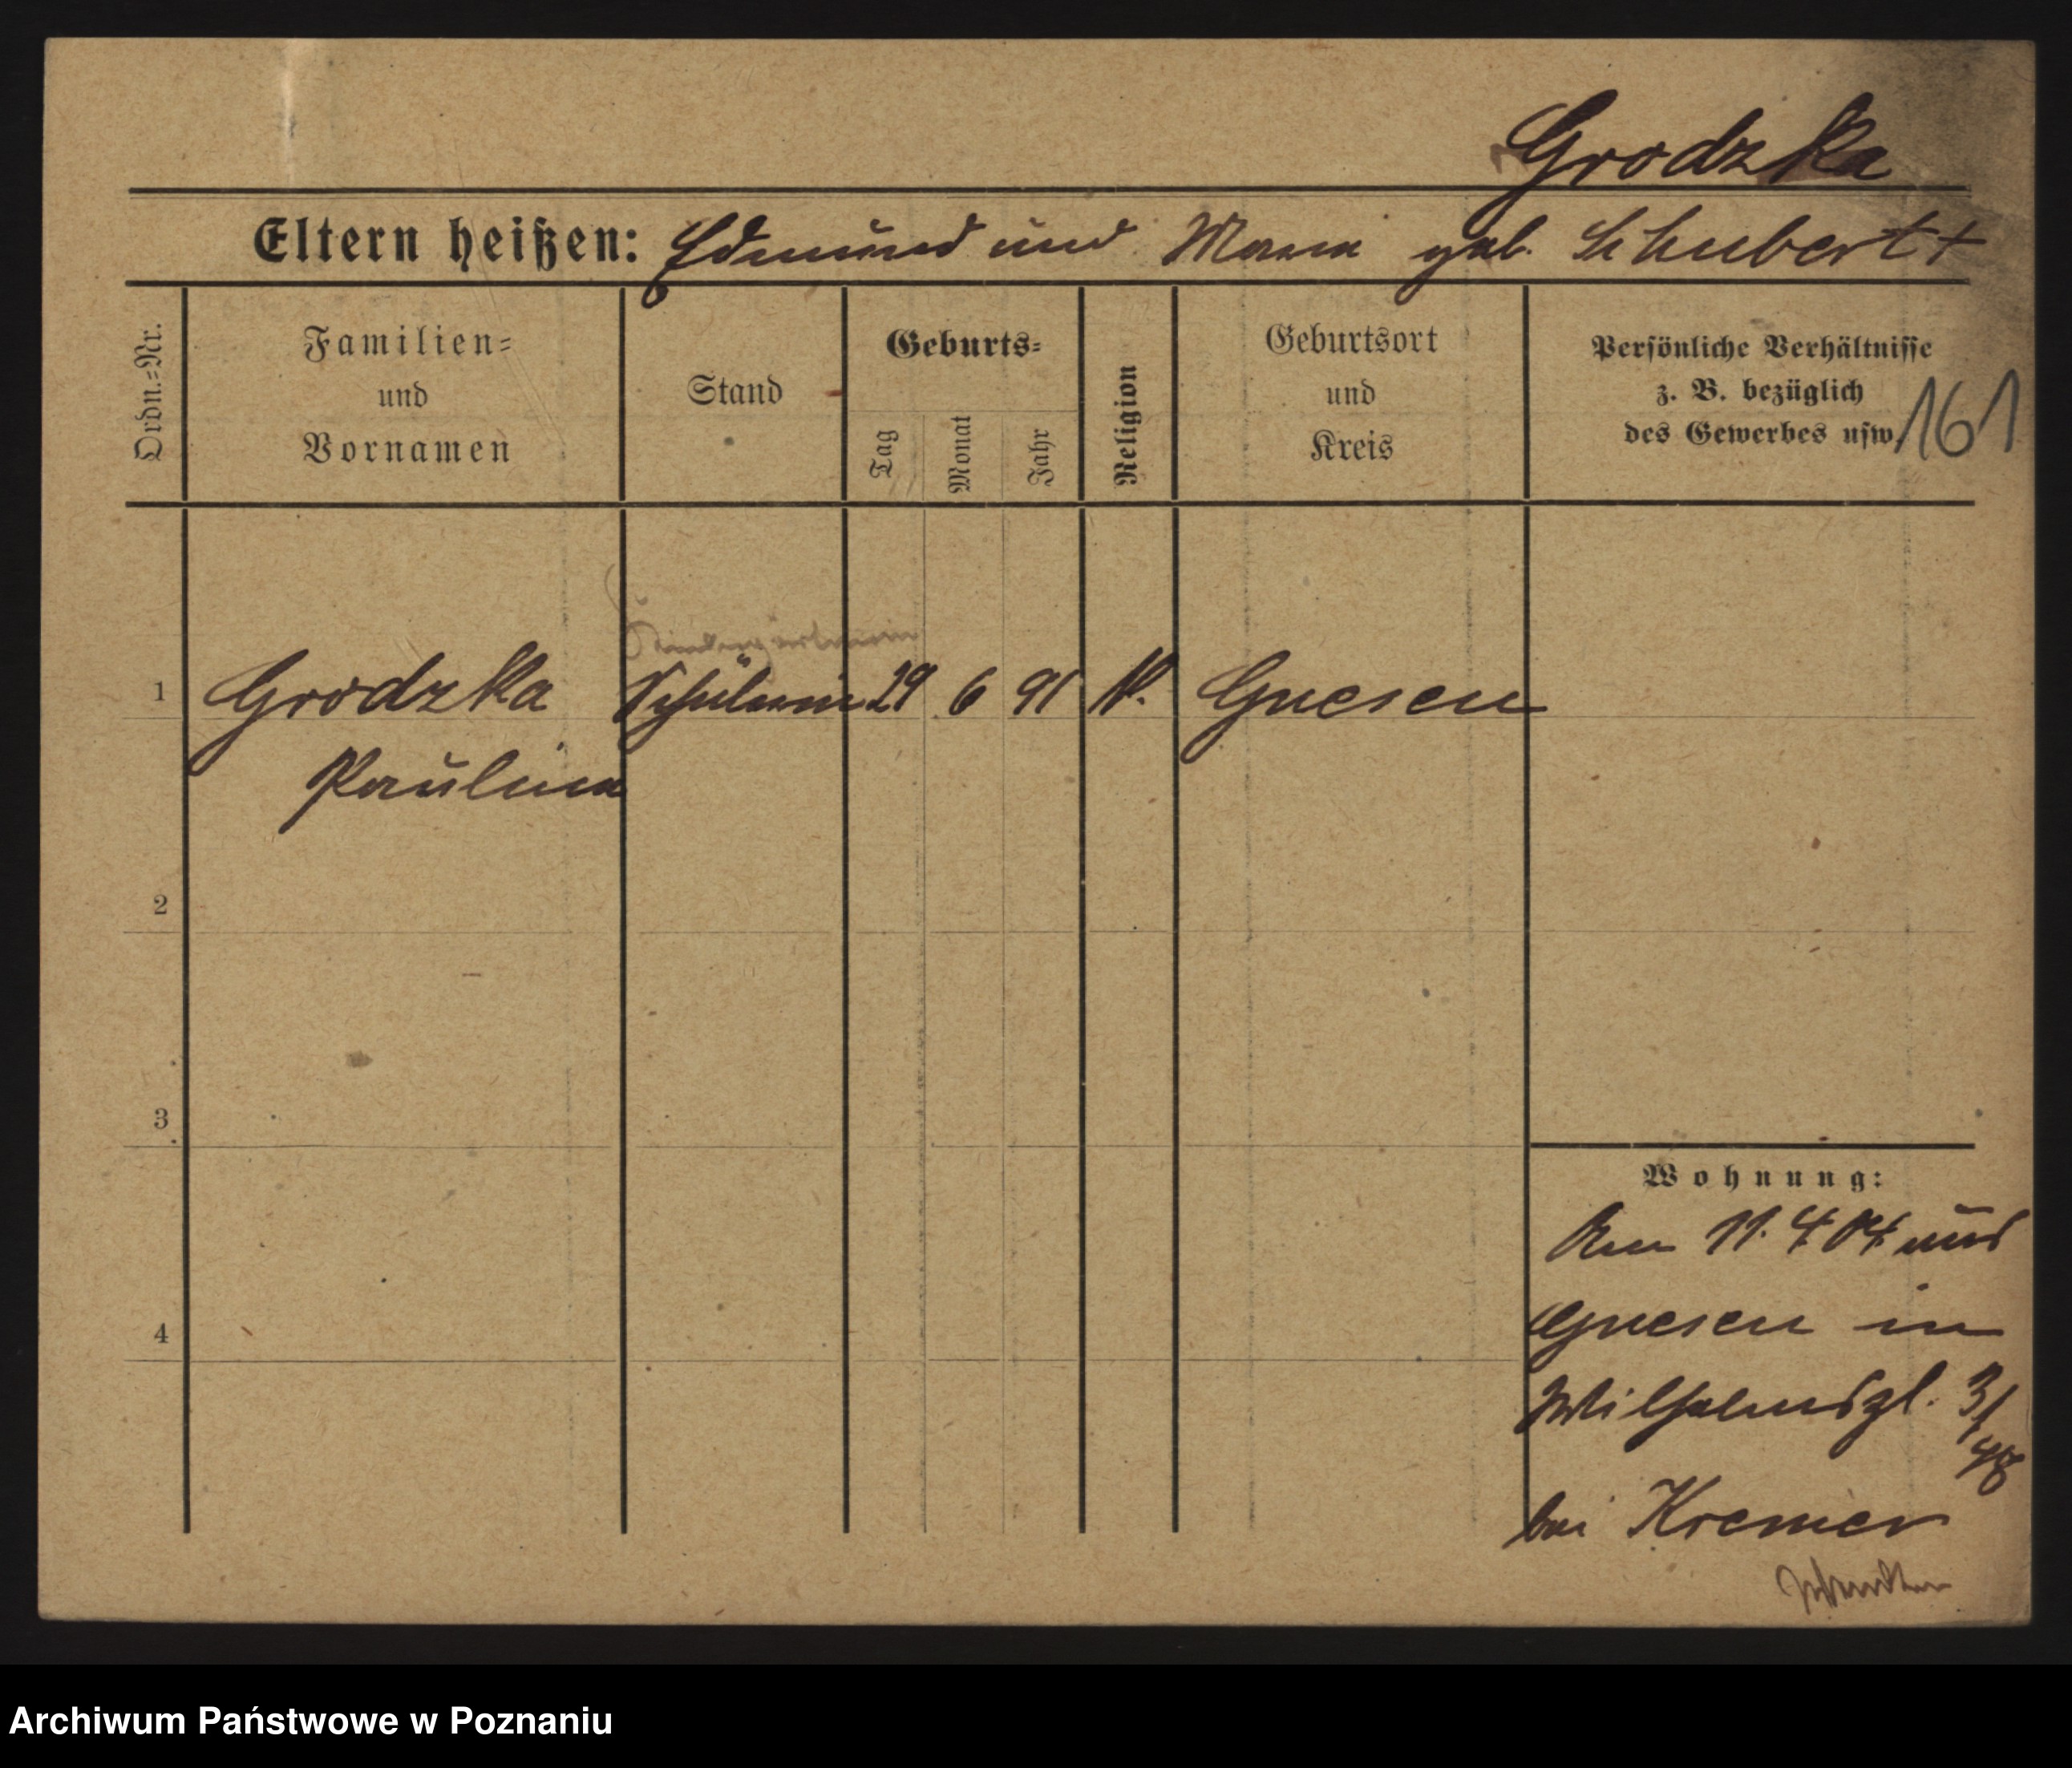 Grodzka
Eltern heißen: Edmund und Maria geb. Schubert +
Ordn.=Nr.
Familien=
und
Vornamen
Stand
Geburts=
Tag
Monat
Jahr
Religion
Geburtsort
und
Kreis
Persönliche Verhältnisse
z. B. bezüglich
des Gewerbes usw.
161
Kindergärtnerin
1 Grodzka Schülerin 29 6 91 K. Gnesen
Paulina
2
3
4
Wohnung:
Am 11.4.04 aus
Gnesen in
Wilhelmspl. 3/
48
bei Kremer
Archiwum Państwowe w Poznaniu